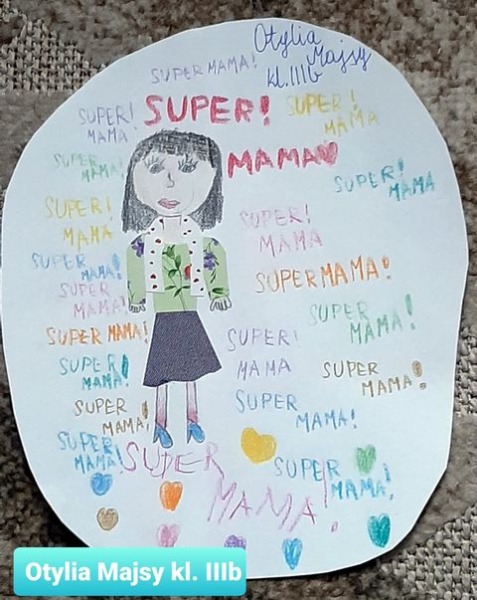 Otylia
Majsy
kl. IIIb
SUPER MAMA!
SUPER!
MAMA!
SUPER!
MAMA
SUPER!
MAMA
SUPER
MAMA!
SUPER!
MAMA
SUPER!
MAMA
SUPER!
MAMA
SUPER
MAMA!
SUPER MAMA!
SUPER
MAMA!
SUPER
MAMA!
SUPER MAMA!
SUPER!
MAMA
SUPER
MAMA!
SUPER
MAMA!
SUPER
MAMA!
SUPER
MAMA!
SUPER
MAMA!
SUPER
MAMA!
SUPER
MAMA!
Otylia Majsy kl. IIIb